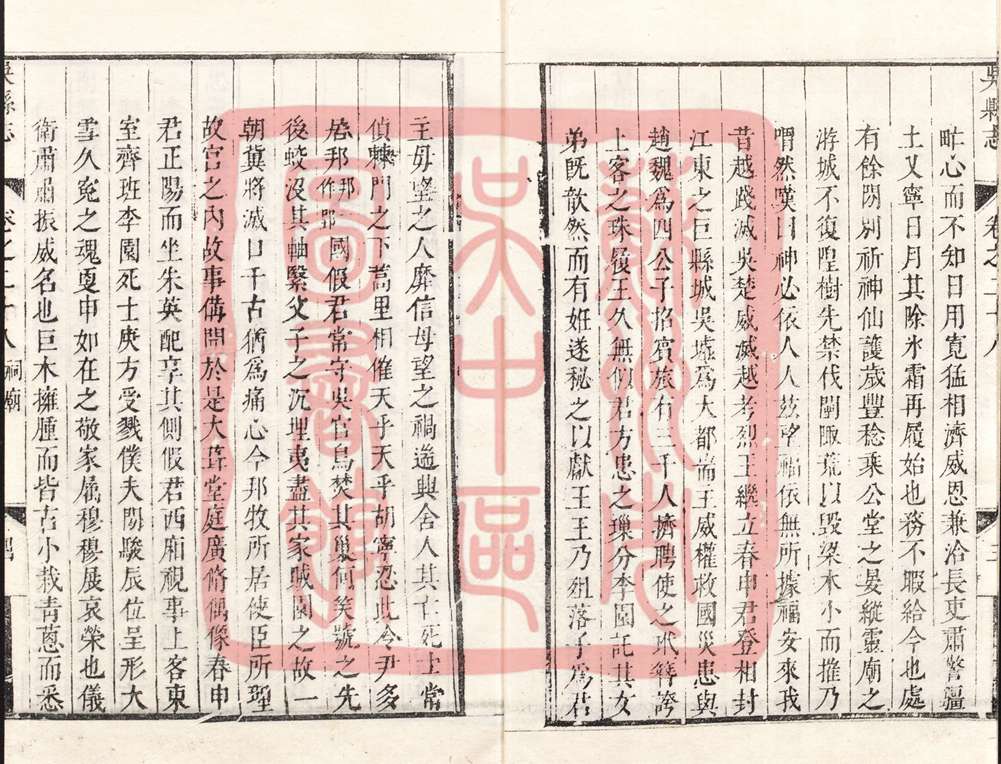 吳縣志
卷之二十八
畔心而不知日用寬猛相濟威恩兼洽長吏肅警疆
土又寧日月其除氷霜再履始也務不暇給今也處
有餘閑別祈神仙護歲豐稔乘公堂之晏縱靈廟之
游城不復隍樹先禁伐闢陬荒以毀梁木小而摧乃
喟然嘆曰神必依人人茲咨福依無所據福安來我
昔越踐滅吳楚威滅越考烈王繼立春申君登相封
江東之巨縣城吳墟爲大都耑王威權救國災患與
趙魏爲四公子招賓旅有三千人擠聘使之玳簪誇
上客之珠履王久無似君方患之璅分李園託其女
弟旣歆然而有姙遂秘之以獻王王乃殂落子爲君
主毋望之人靡信毋望之禍遄與舍人其亡死士常
偵棘門之下蒿里相催天乎天乎胡寧忍此令尹多
居邦邦作郢國假君常守吳宮鳥焚其巢何笑號之先
後蛟沒其軸緊父子之沉埋夷盡其家賊園之故一
朝冀將滅口千古猶爲痛心今邦牧所居使臣所理
故宮之內故事備聞於是大葺堂庭廣脩偶像春申
君正陽而坐朱英配享其側假君西廂視事上客東
室齊班李園死士庚方受戮僕夫閑駿辰位呈形大
雪久寃之魂更申如在之敬家屬穆穆展哀榮也儀
衛肅肅振威名也巨木擁腫而皆古小栽靑蔥而悉
吳縣志
卷之二十八
祠廟
蘇州市
吳中區
圖書館